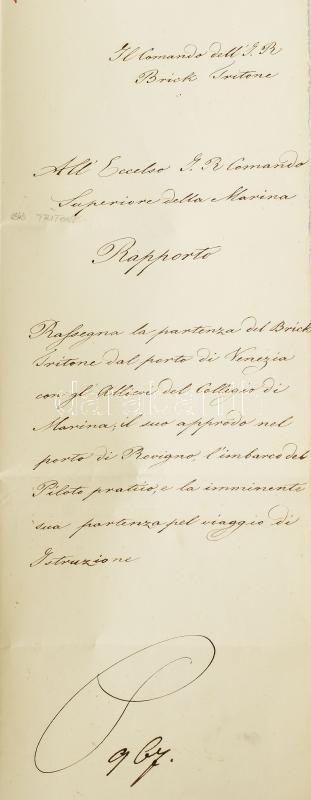 Il Comando dell' I. R
Brick Tritone
All' Eccelso I. R Comando
Superiore della Marina
TRITONE
Rapporto
Rassegna la partenza del Brick
Tritone dal porto di Venezia
con gl' Allievi del Collegio di
Marina, il suo approdo nel
porto di Rovigno, l'imbarco del
Piloto pratico, e la imminente
sua partenza pel viaggio di
Istruzione
darabanth
967.